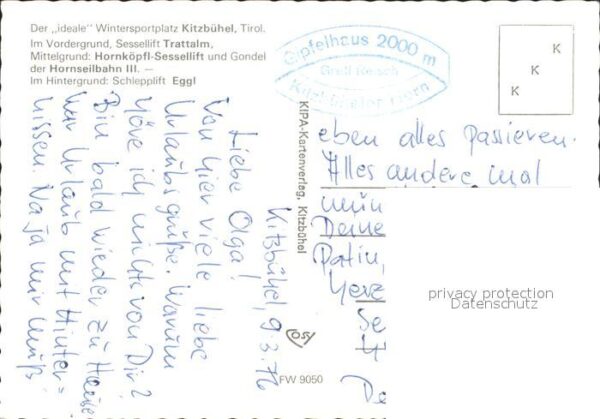 Der „ideale" Wintersportplatz Kitzbühel, Tirol.
Im Vordergrund, Sessellift Trattalm,
Mittelgrund: Hornköpfl-Sessellift und Gondel
der Hornseilbahn III. —
Im Hintergrund: Schlepplift Eggl
Gipfelhaus 2000 m
Kitzbüheler Horn
K
K
K
KIPA-Kartenverlag, Kitzbühel
COSY
FW 9050
Kitzbühel, 9.3.76
Liebe Olga!
Von hier viele liebe
Urlaubsgrüße. Warum
höre ich nichts von Dir?
Bin bald wieder zu Hause
war Urlaub mit Hinter=
nissen. Na ja mir muß
eben alles passieren.
Alles andere mal
Deine
Patin,
Herz
Se
privacy protection
Datenschutz